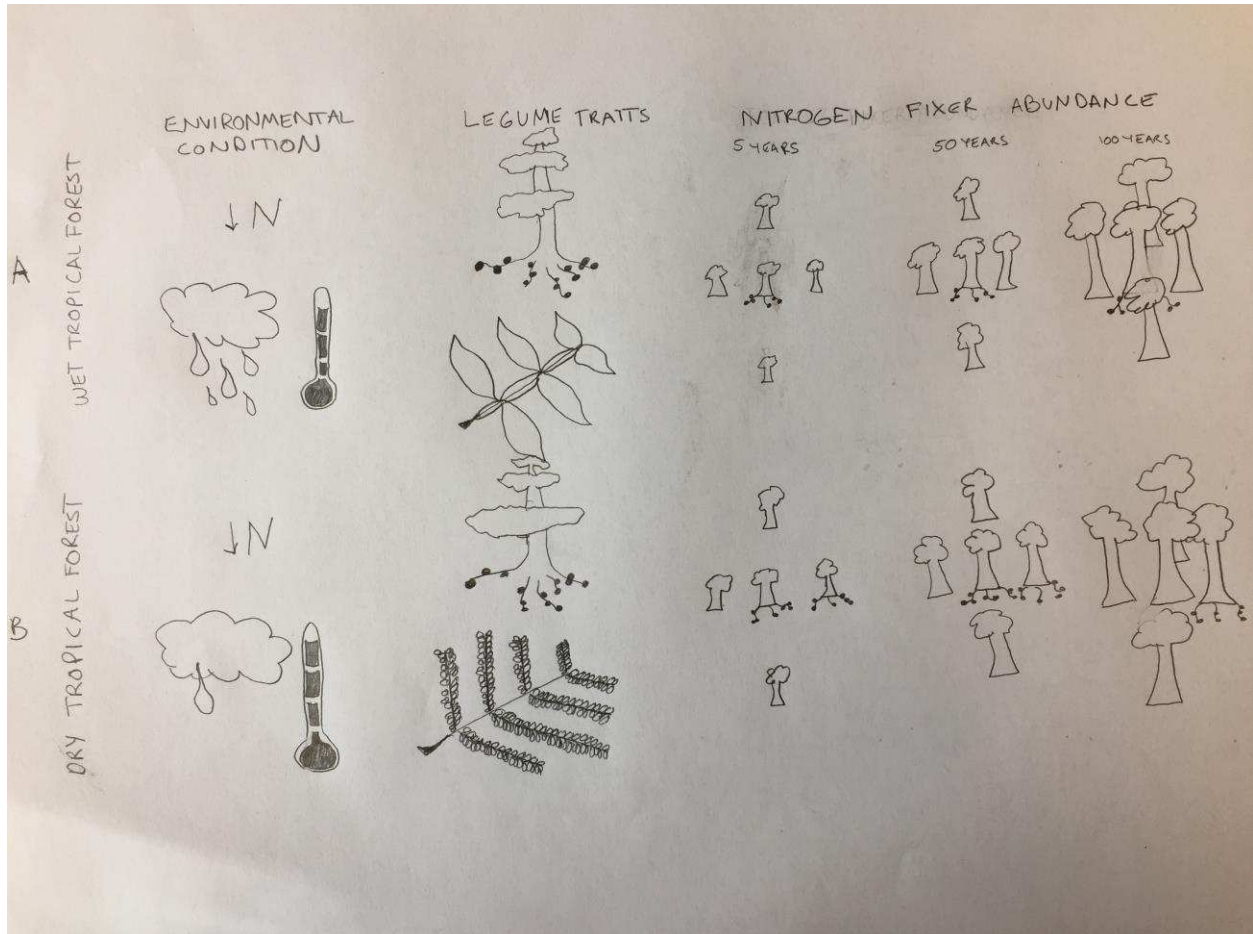 ENVIRONMENTAL
CONDITION
LEGUME TRAITS
NITROGEN FIXER ABUNDANCE
5 YEARS
50 YEARS
100 YEARS
A
WET TROPICAL FOREST
↓N
B
DRY TROPICAL FOREST
↓N